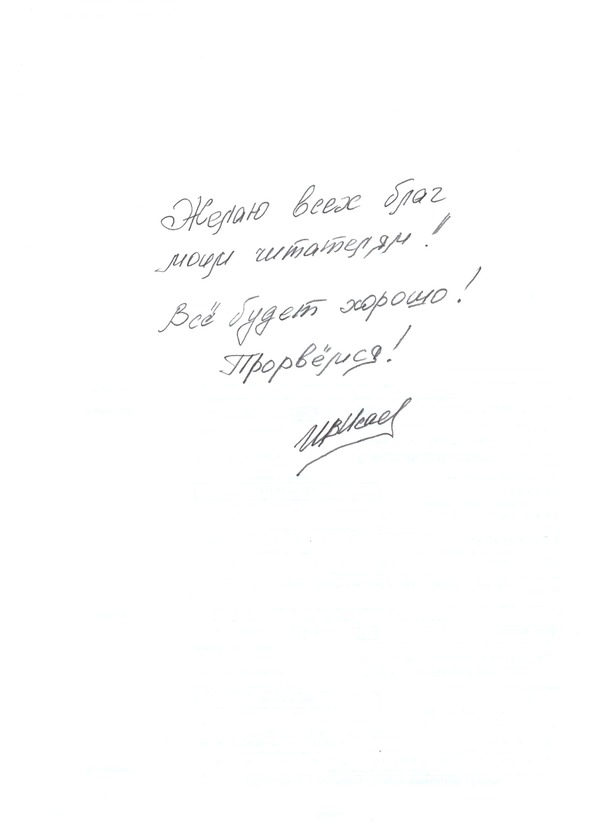 Желаю всех благ
моим читателям!
Всё будет хорошо!
Прорвёмся!